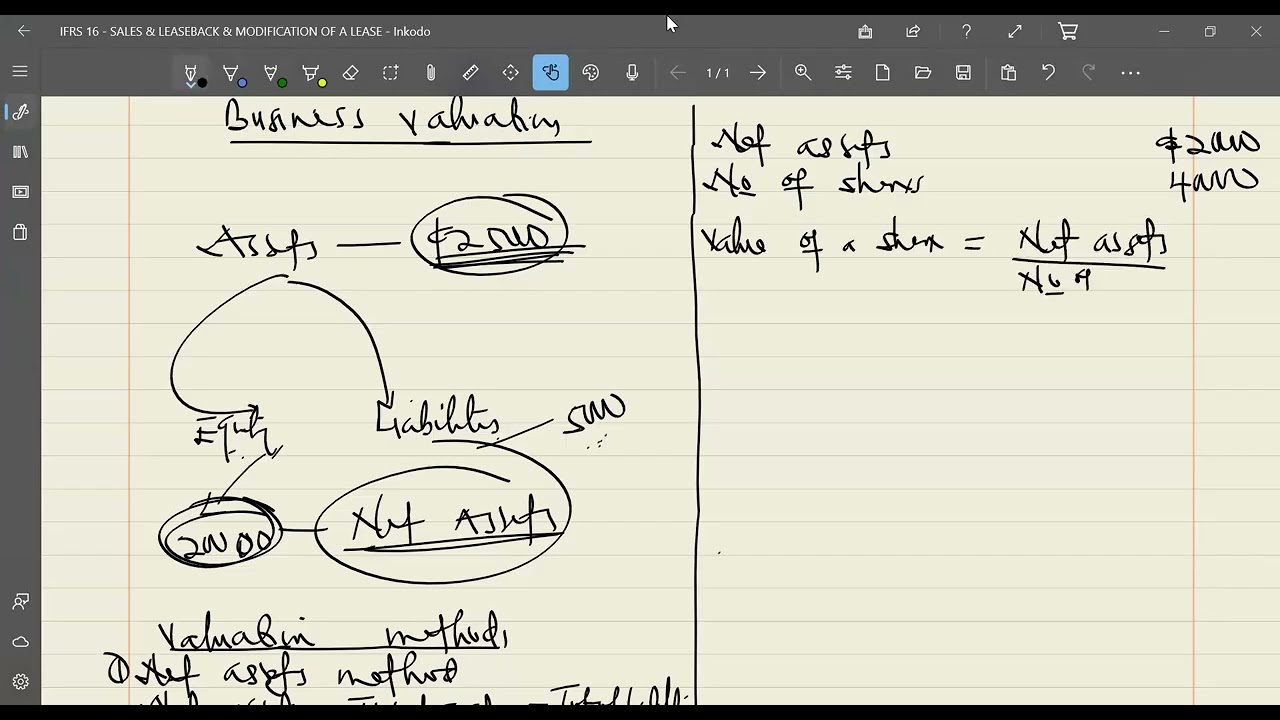 IFRS 16 - SALES & LEASEBACK & MODIFICATION OF A LEASE - Inkodo
1/1
Business Valuation
Assets — $25000
Equity
Liabilities
5000
20000
Net Assets
Valuation methods
① Net assets method
Net assets $20000
No of shares 40000
Value of a share = Net assets
No of